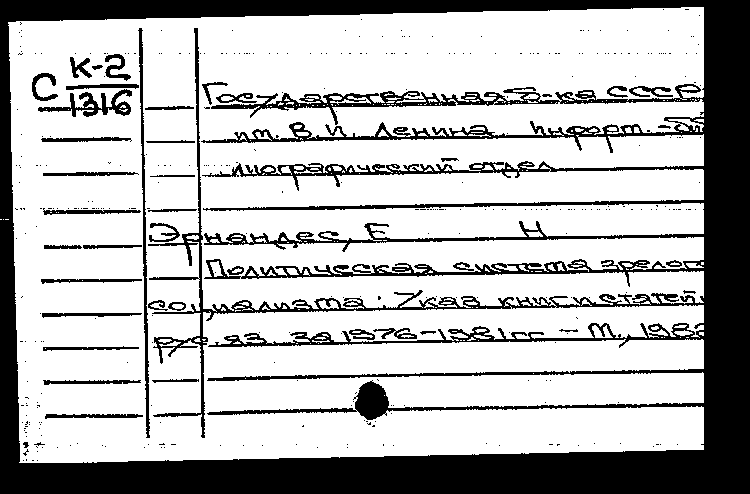 С К-2
1316
Государственная б-ка СССР
им. В. И. Ленина. Информ.-биб
лиографический отдел
Эрнандес, Е Н
Политическая система зрелого
социализма: Указ книг и статей
рус. яз. за 1976-1981 гг - М.,